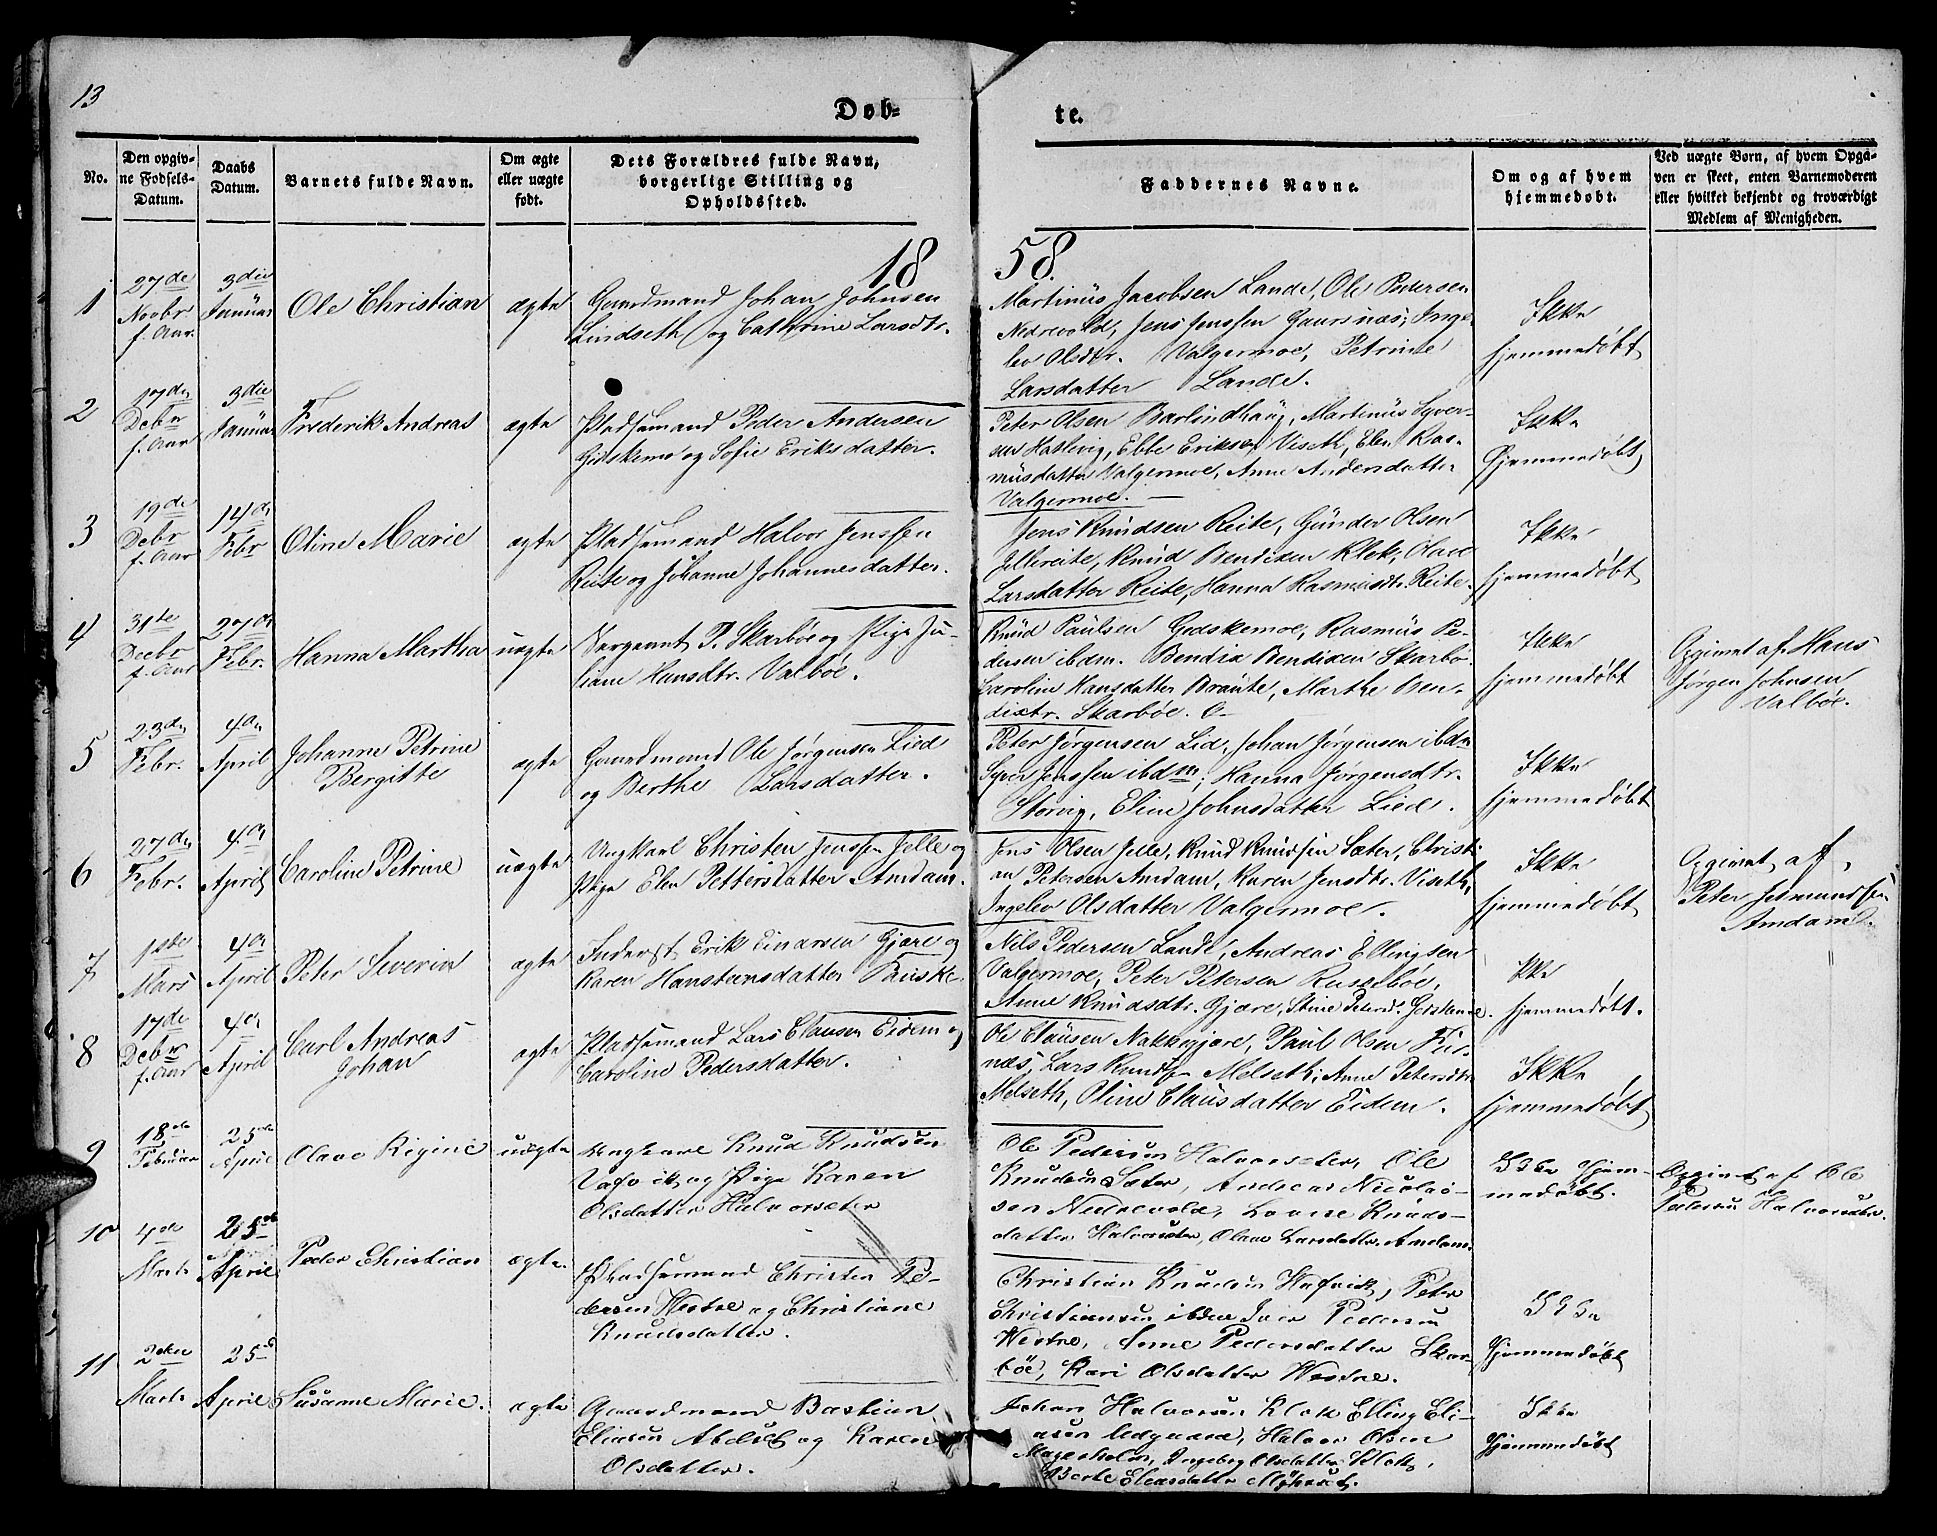 13
Døb-
te.
No.
Den opgiv-
ne Fødsels-
Datum.
Daabs
Datum.
Barnets fulde Navn.
Om ægte
eller uægte
født.
Dets Forældres fulde Navn,
borgerlige Stilling og
Opholdssted.
Faddernes Navne.
Om og af hvem
hjemmedøbt.
Ved uægte Børn, af hvem Opgi-
ven er skeet, enten Barnemoderen
eller hvilket bekjendt og troværdigt
Medlem af Menigheden.
18
58.
1
27de
Novbr
f. Aar.
3die
Januar
Ole Christian
ægte
Gaardmand Johan Johnsen
Lindseth og Cathrine Larsdtr.
Martinüs Jacobsen Lande, Ole Pedersen
Nedrevold, Jens Jenssen Gaursnæs, Inge-
lev Olsdtr. Valgermoe, Petrine
Larsdatter Lande.
Ikke
hjemmedøbt
2
17de
Debr
f. Aar
3die
Januar
Frederik Andreas
ægte
Pladsemand Peder Andersen
Gidskemo og Sofie Eriksdatter.
Peter Olsen Barlindhaug, Martinüs Syver-
sen Hatlevig, Ebbe Eriksen Viseth, Elen Ras-
müsdatter Valgermoe, Anne Andersdatter
Valgermoe.
Ikke
hjemmedøbt
3
19de
Debr
f. Aar
14de
Febr
Oline Marie
ægte
Pladsemand Halvor Jenssen
Reite og Johanne Johannesdatter.
Jens Knüdsen Reite, Günder Olsen
Jellereite, Knüd Bendixen Klok, Olave
Larsdatter Reite, Hanna Rasmüsdtr. Reite.
Ikke
hjemmedøbt
4
31te
Decbr
f. Aar
27de
Febr.
Hanna Martha
uægte
Sergeant P. Skarbøe og Pige Ju-
liane Hansdtr. Valbøe.
Knüd Paulsen Gidskemoe, Rasmüs Pe-
dersen ibdm. Bendix Bendixen Skarbø.
Caroline Hansdatter Braute, Marthe Ben-
dixtr. Skarbøe.
Ikke
hjemmedøbt
Opgivet af Hans
Jørgen Johnsen
Valbøe.
5
23de
Febr.
4de
April
Johanne Petrine
Bergitte
ægte
Gaardmand Ole Jørgensen Lied
og Berthe Larsdatter.
Peter Jørgensen Lid, Johan Jørgensen ibdm
Syver Jenssen ibdm, Hanna Jørgensdtr.
Storvig, Eline Johnsdatter Lied.
Ikke
hjemmedøbt
6
27de
Febr.
4de
April
Caroline Petrine
uægte
Ungkarl Christen Jenssen Jelle og
Pige Elen Pettersdatter Amdam.
Jens Olsen Jelle, Knud Knudsen Sæter, Christi-
an Petersen Amdam, Karen Jensdtr. Viseth,
Ingelev Olsdatter Valgermoe.
Ikke
hjemmedøbt
Opgivet af
Peter
Amdam.
7
1ste
Mars
4de
April
Peter Severin
ægte
Inderst Erik Einarsen Gjære og
Karen Hansteensdatter
Nils Pedersen Lande, Andreas Ellingsen
Valgermoe, Peter Petersen Russebøe,
Anne Knudsdtr. Gjære, Stine Petersd.
Ikke
hjemmedøbt.
8
17de
Debr
f. Aar
4de
April
Carl Andreas
Johan
ægte
Pladsemand Lars Clausen Eidem og
Caroline Pedersdatter.
Ole Claüsen Nakkegjære, Paul Olsen Fur-
næs, Lars Knudsen Melseth, Anne Petersdtr
Melseth, Oline Claüsdatter Eidem.
Ikke
hjemmedøbt
9
18de
Februar
25de
April
Olave Regine
uægte
Ungkarl Knud Knudsen
og Pige Karen
Olsdatter Halvorsæter
Ole Pedersen Halvorsæter, Ole
Knudsen Sæter, Andreas Nicolai-
sen Nedrevold, Lovise Knuds-
datter Halvorsæter, Olave Larsdatter Amdam.
Ikke hjem-
medøbt.
Opgivet af Ole
Pedersen Halvorsæter.
10
4de
Marts
25de
April
Peder Christian
ægte.
Pladsemand Christen Pe-
dersen Westre og Christiane
Knudsdatter.
Christian Knudsen Hafvik, Peter
Christiansen ibdm Iver Pedersen
Westre, Anne Pedersdatter Skar-
bøe, Kari Olsdatter Westre.
Ikke
hjemmedøbt
11
2den
Marts
25de
April
Susanne Marie.
ægte
Gaardmand Bastian
Eliasen Abelset og Karen
Olsdatter.
Johan Halvorsen Klok Elling Eli-
asen Uedgaard, Halvor Olsen
Mageholm, Ingeborg Olsdatter Klok,
Berte Eliasdatter
Ikke
hjemmedøbt